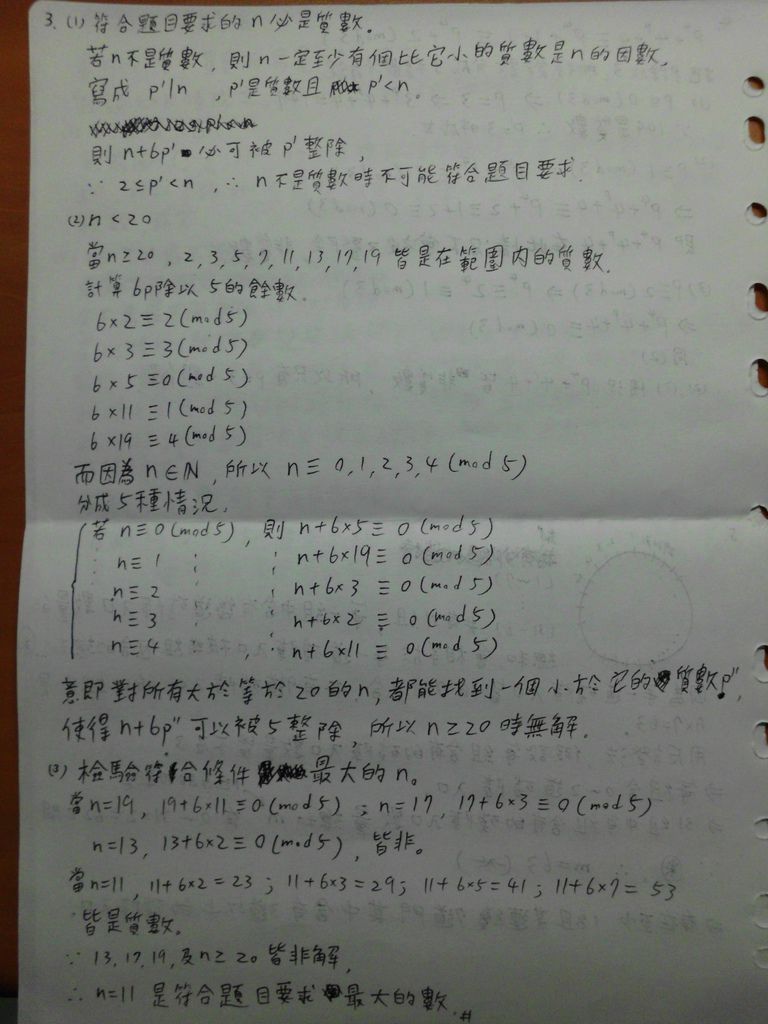 3. (1) 符合題目要求的 n 必是質數。
若 n 不是質數, 則 n 一定至少有個比它小的質數是 n 的因數,
寫成 p'|n , p'是質數且 p'<n.
則 n+6p' 必可被 p' 整除,
∵ 2≤p'<n, ∴ n 不是質數時不可能符合題目要求.
(2) n<20
當n≥20, 2, 3, 5, 7, 11, 13, 17, 19 皆是在範圍內的質數.
計算 6p除以 5 的餘數.
6×2≡2(mod5)
6×3≡3(mod5)
6×5≡0(mod5)
6×11≡1(mod5)
6×19≡4(mod5)
而因為 n∈N, 所以 n≡ 0,1,2,3,4 (mod 5)
分成 5 種情況,
若 n≡0(mod5), 則 n+6×5≡0(mod5)
: n≡1 : : n+6×19≡0(mod5)
: n≡2 : : n+6×3≡0(mod5)
: n≡3 : : n+6×2≡0(mod5)
: n≡4 , : n+6×11≡0(mod5)
意即對所有大於等於 20 的n, 都能找到一個小於它的質數p",
使得 n+6p" 可以被 5 整除, 所以 n≥20 時無解.
(3) 檢驗符合條件最大的n。
當n=19, 19+6×11≡0(mod5) ; n=17, 17+6×3≡0(mod5)
n=13, 13+6×2≡0(mod5), 皆非。
當n=11, 11+6×2=23 ; 11+6×3=29; 11+6×5=41 ; 11+6×7=53
皆是質數。
∵ 13, 17, 19, 及n≥20 皆非解,
∴ n=11 是符合題目要求最大的數. #